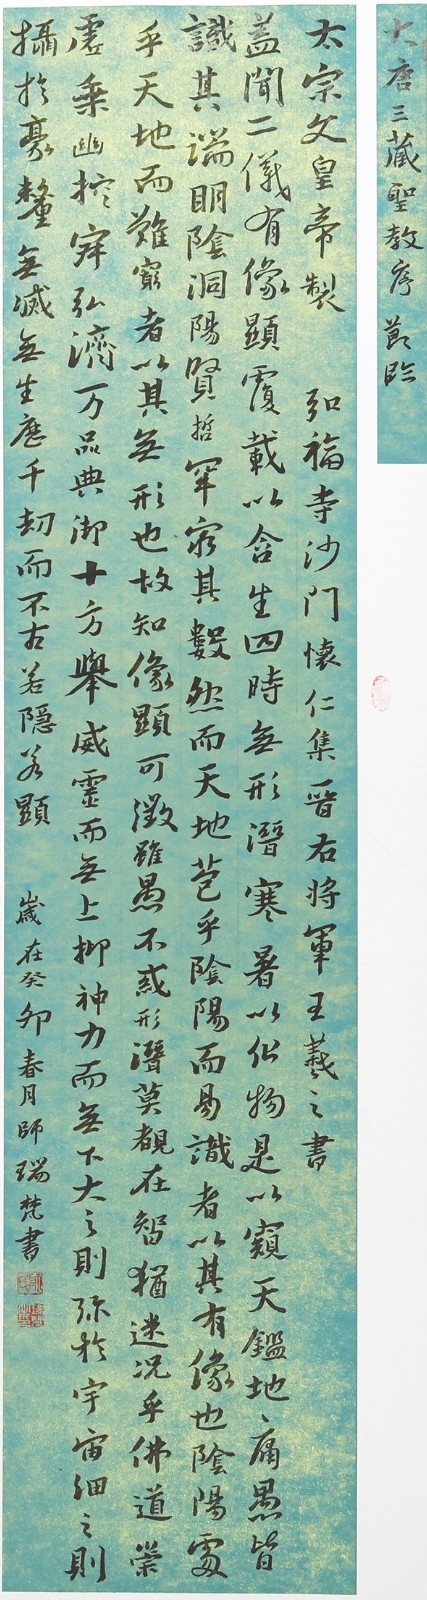 大唐三藏聖教序 節臨
太宗文皇帝製 弘福寺沙門懷仁集晉右將軍王羲之書
蓋聞二儀有像顯覆載以含生四時無形潛寒暑以化物是以窺天鑑地〻庸愚皆
識其端明陰洞陽賢哲罕窮其數然而天地苞乎陰陽而易識者以其有像也陰陽處
乎天地而難窮者以其無形也故知像顯可徵雖愚不惑形潛莫覩在智猶迷況乎佛道崇
虛乘幽控寂弘濟万品典御十方舉威靈而無上抑神力而無下大之則弥於宇宙細之則
攝於豪釐無滅無生歷千劫而不古若隱若顯 歲在癸卯春月師瑞梵書